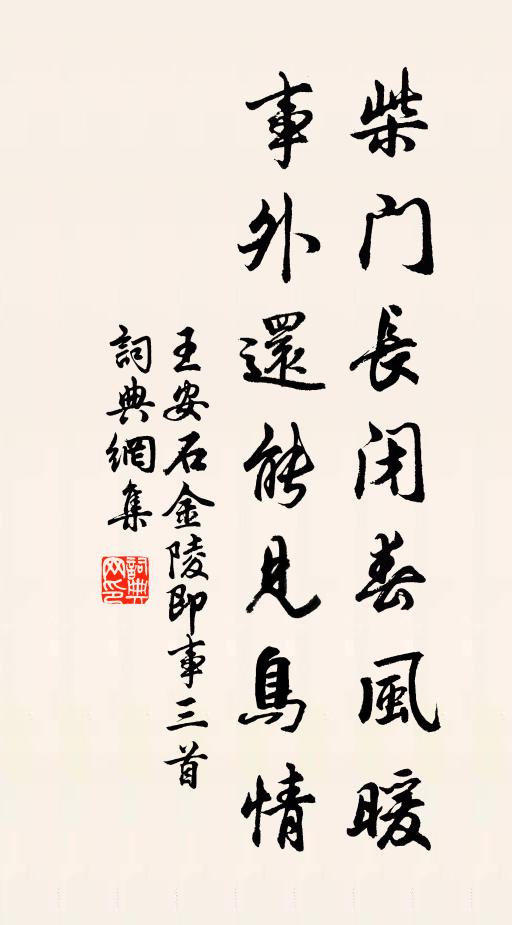 柴门長闭春風暖
事外還能見鳥情
王安石金陵即事三首
詞典網集
詞典网印